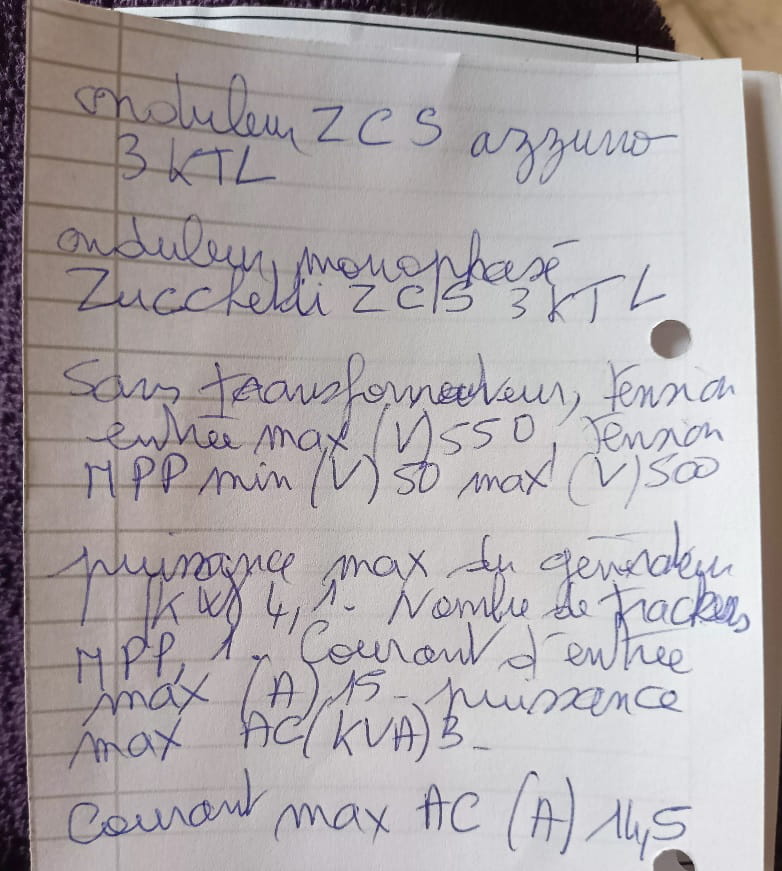 onduleur ZCS azzurro
3 KTL
onduleur monophasé
Zucchetti ZCS 3 KTL
Sans transformateur, tension
entrée max (V) 550, Tension
MPP min (V) 50 max (V) 500
puissance max du générateur
(KW) 4,1. Nombre de trackers
MPP, 1. Courant d'entrée
max (A) 15 - puissance
max AC (KVA) 3 -
Courant max AC (A) 14,5